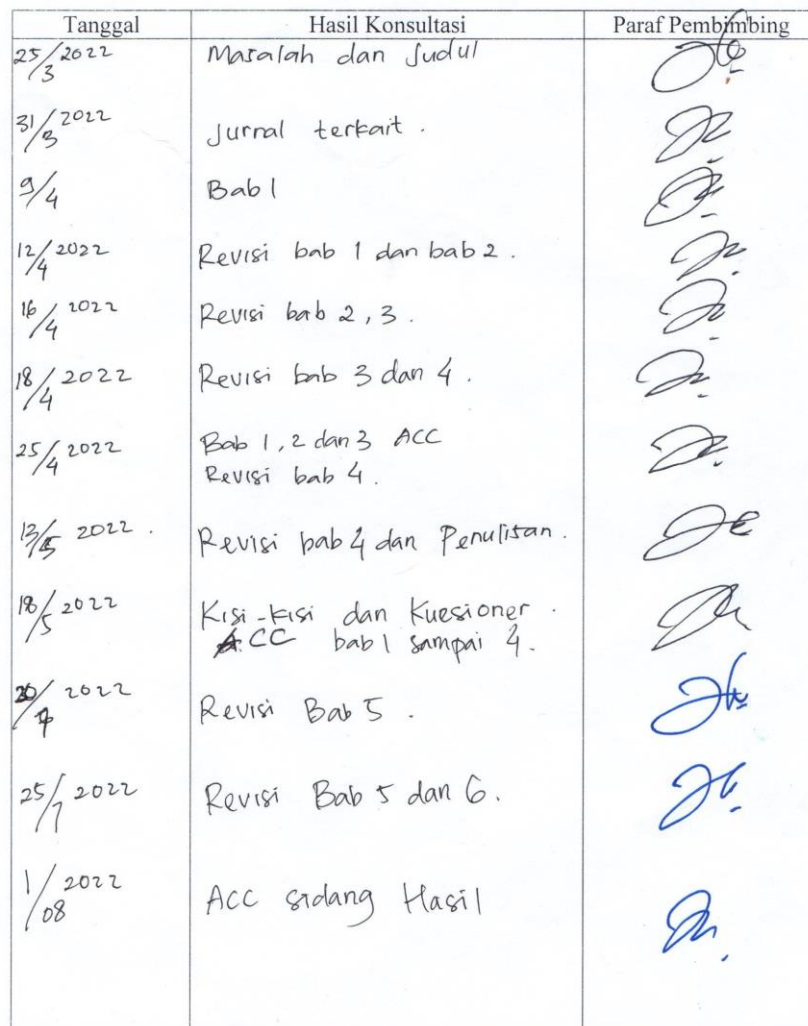 Tanggal Hasil Konsultasi Paraf Pembimbing
25/3 2022 Masalah dan Judul
31/3 2022 Jurnal terkait .
9/4 Bab 1
12/4 2022 Revisi bab 1 dan bab 2 .
16/4 2022 Revisi bab 2, 3 .
18/4 2022 Revisi bab 3 dan 4 .
25/4 2022 Bab 1, 2 dan 3 ACC
Revisi bab 4 .
13/5 2022 . Revisi bab 4 dan Penulisan .
18/5 2022 Kisi-kisi dan Kuesioner .
ACC bab 1 sampai 4 .
20/7 2022 Revisi Bab 5 .
25/7 2022 Revisi Bab 5 dan 6 .
1/08 2022 ACC sidang Hasil